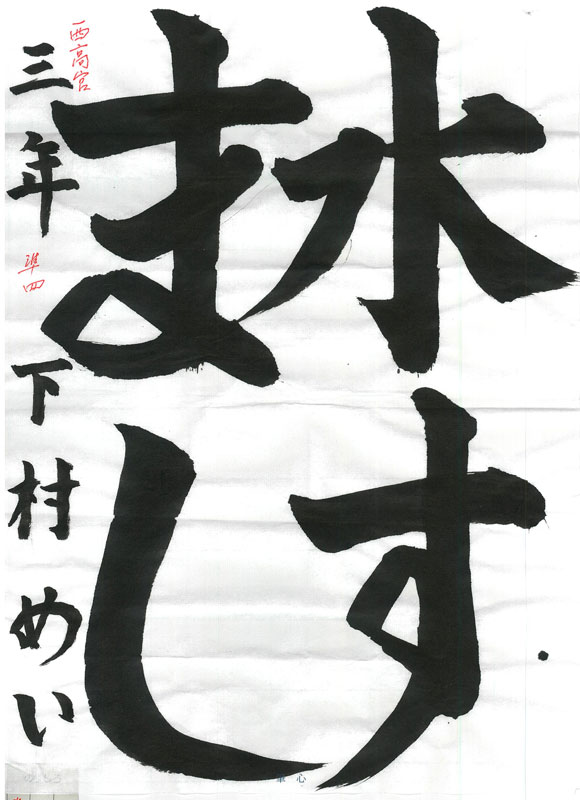 水す
まし
西高宮
三年 準四 下村めい
筆心